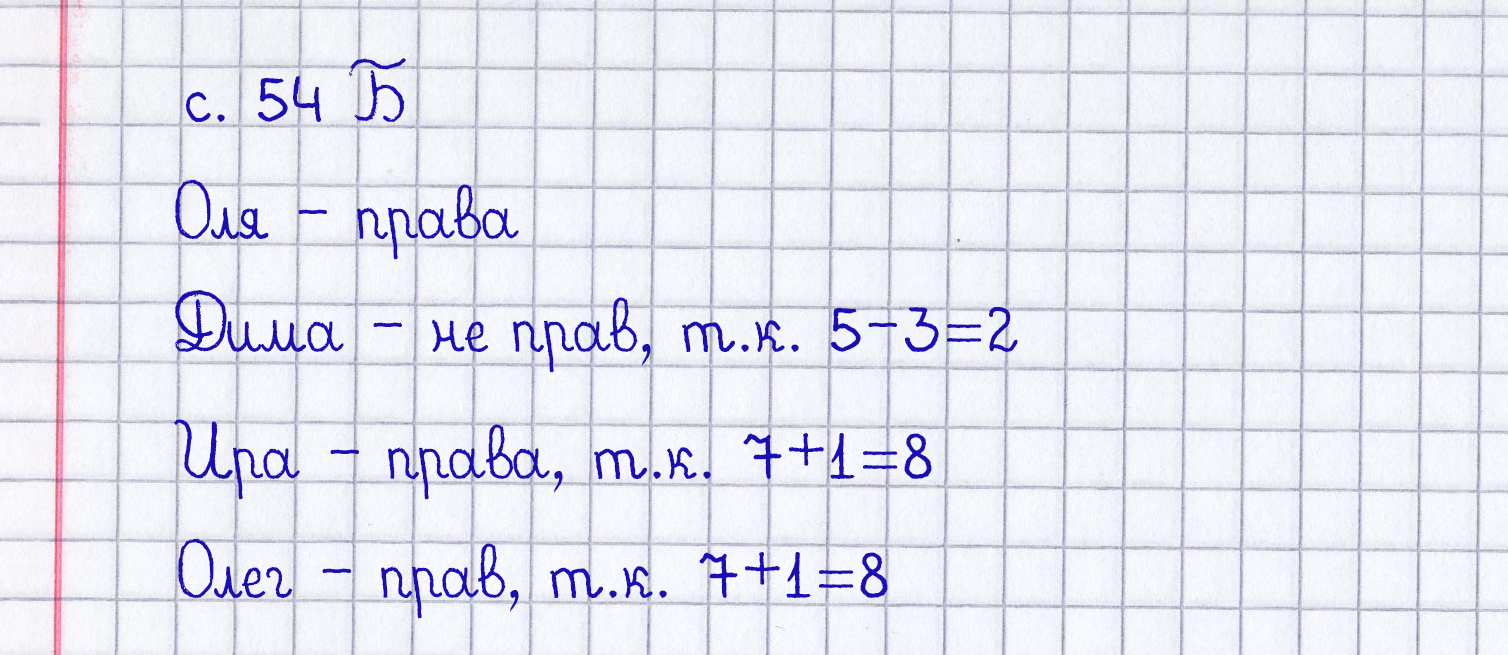 с. 54 Б
Оля - права
Дима - не прав, т.к. 5-3=2
Ира - права, т.к. 7+1=8
Олег - прав, т.к. 7+1=8